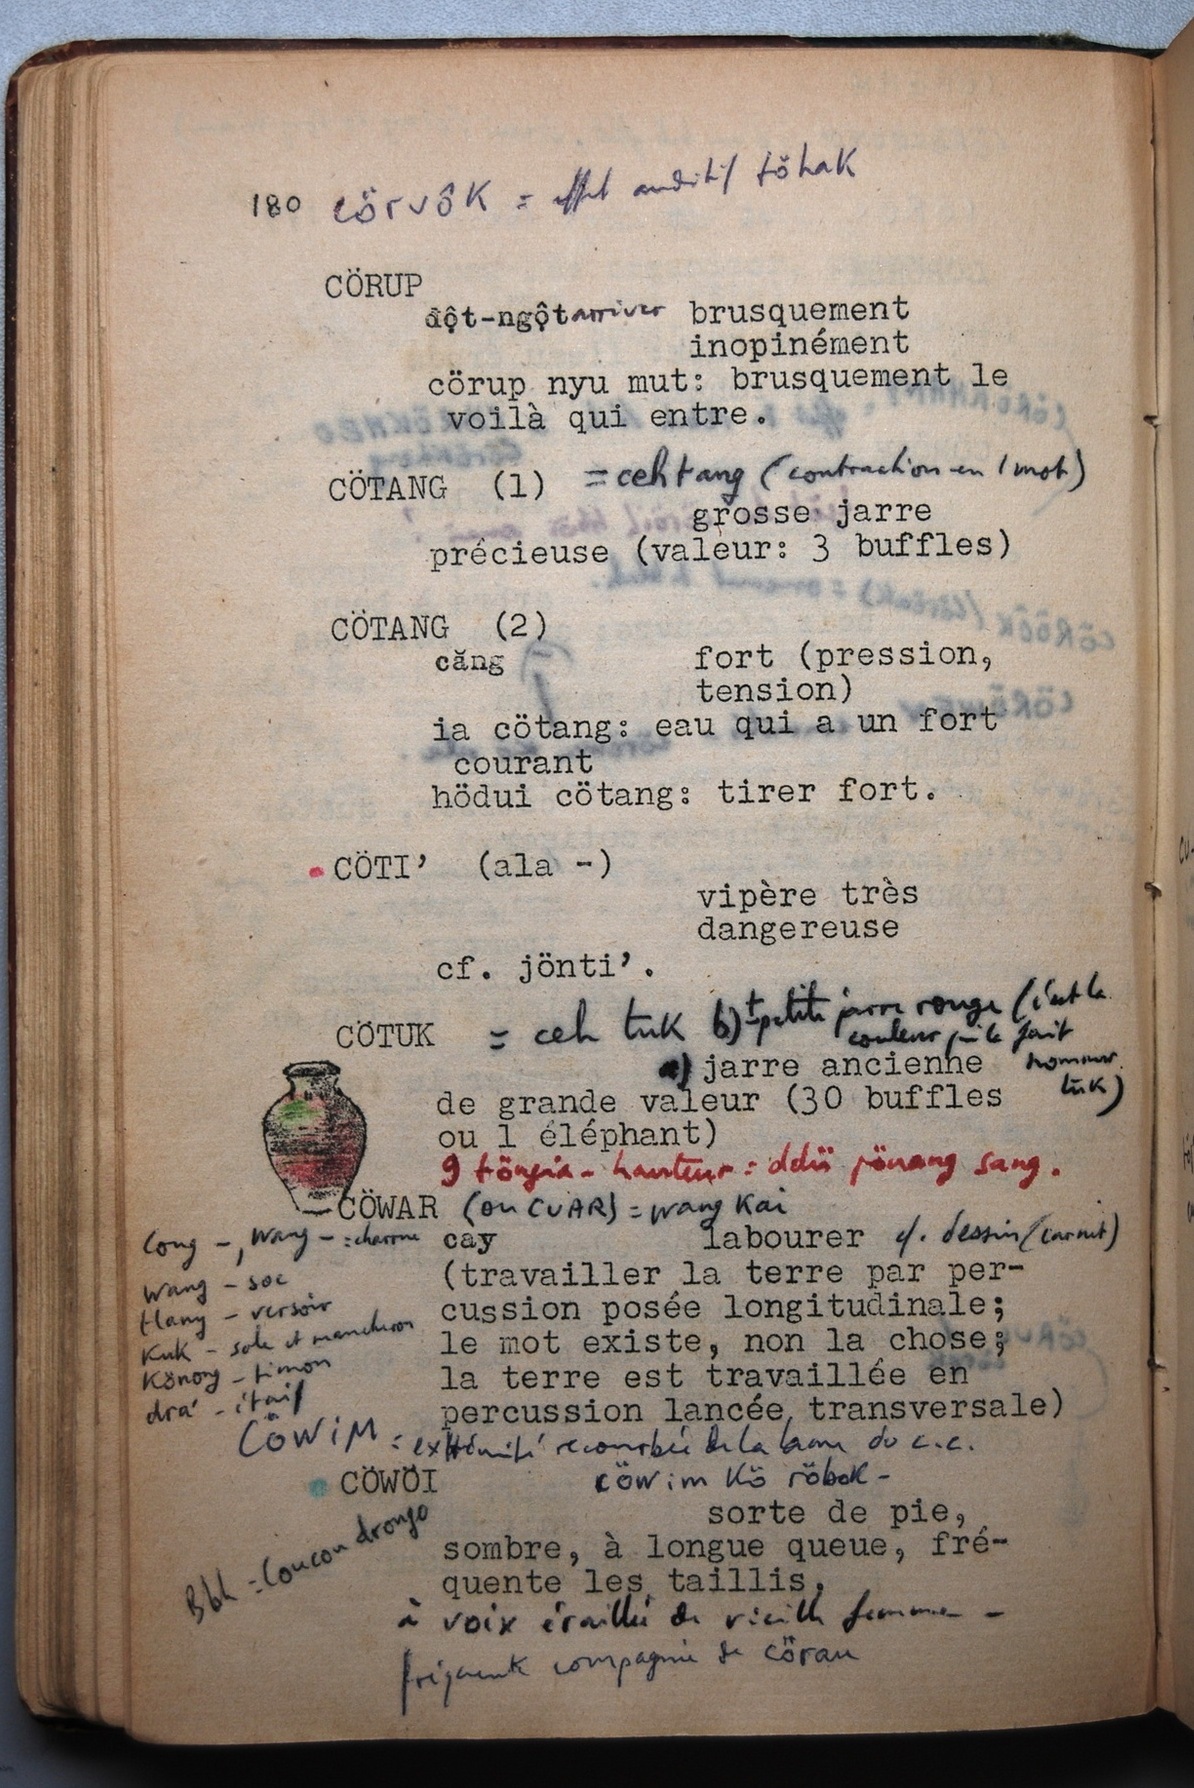 180 CÖRVÔK = effet auditif töhak
CÖRUP
đột-ngột arriver brusquement
inopinément
cörup nyu mut: brusquement le
voilà qui entre.
CÖTANG (1) = ceh tang (contraction en 1 mot)
grosse jarre
précieuse (valeur: 3 buffles)
CÖTANG (2)
căng fort (pression,
tension)
ia cötang: eau qui a un fort
courant
hödui cötang: tirer fort.
CÖTI’ (ala -)
vipère très
dangereuse
cf. jönti’.
CÖTUK = ceh tuk b) petite jarre rouge (c'est la
couleur qui le fait
a) jarre ancienne nommer
de grande valeur (30 buffles tuk)
ou 1 éléphant)
9 töngia - hauteur = ddii pönang sang.
CÖWAR (ou CUAR) = wang Kai
Cong -, wang - = charrue cay labourer cf. dessin (carnet)
(travailler la terre par per-
wang - soc
cussion posée longitudinale;
Hang - versoir
le mot existe, non la chose;
Kuk - sole et mancheron
la terre est travaillée en
Könong - timon
percussion lancée transversale)
dra' - étai
CÖWIM = extrémité recourbée de la lame du c.c.
cöwim kö röbok -
CÖWÖI
sorte de pie,
sombre, à longue queue, fré-
quente les taillis,
Bbh = Coucou drongo
à voix éraillée de vieille femme -
fréquente compagnie de cöran